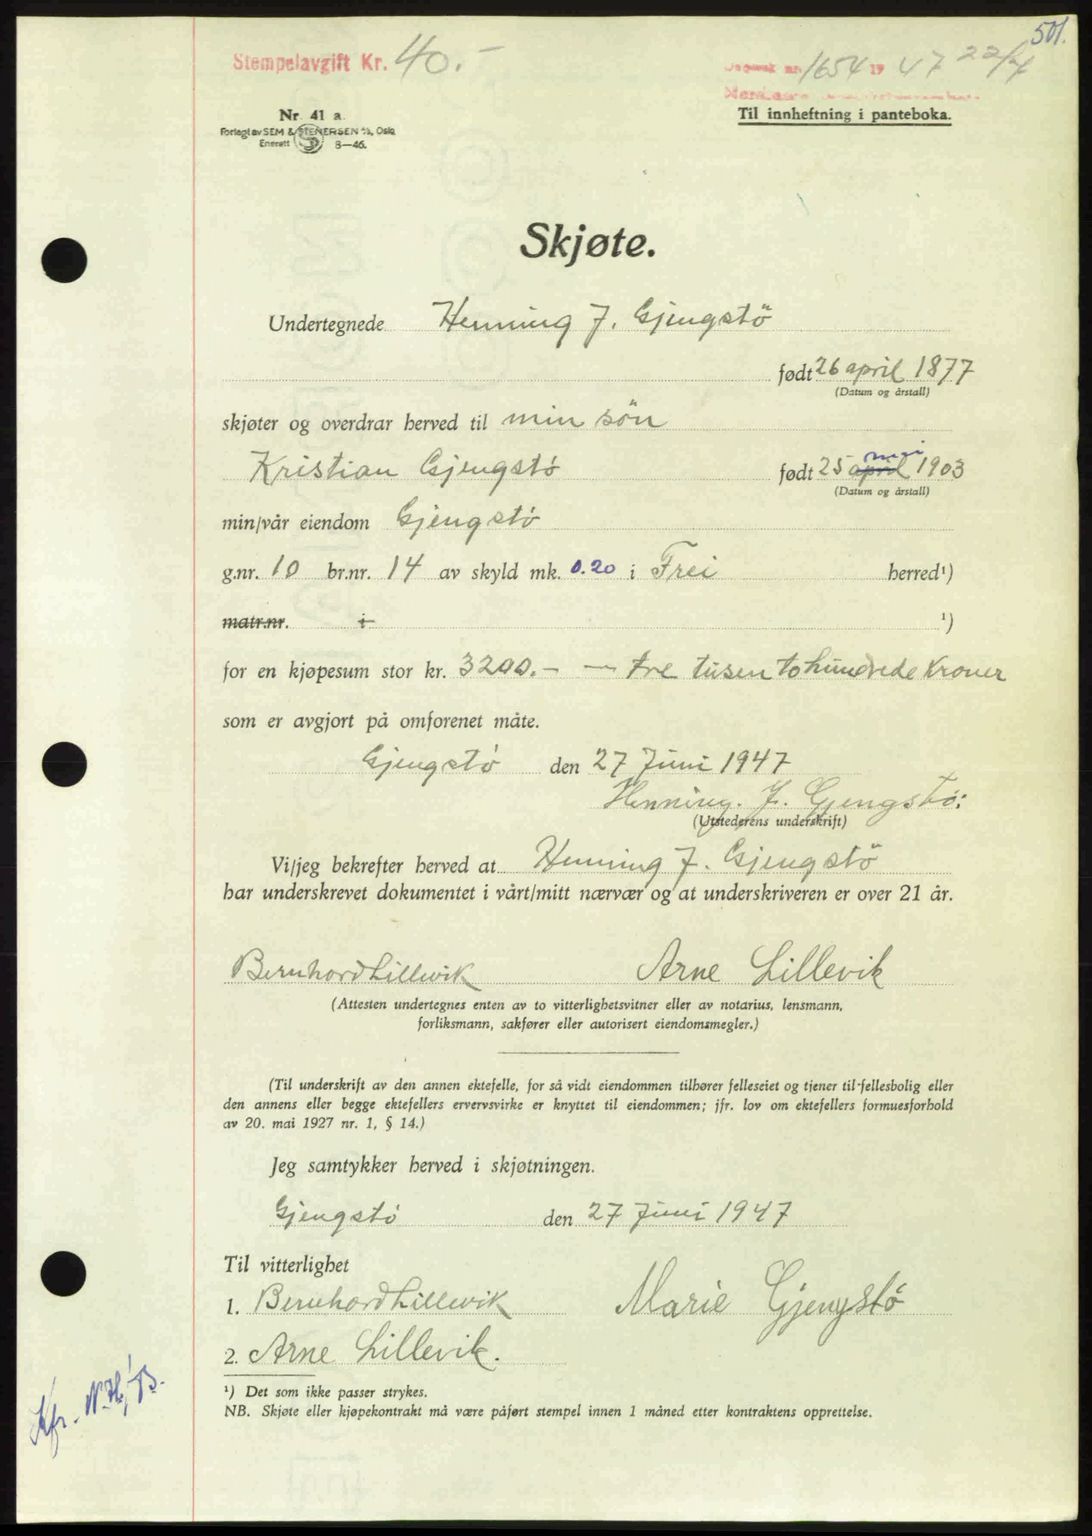 501.
Stempelavgift Kr. 40.-
1654 19 47 22/7
Nr. 41 a.
Til innheftning i panteboka.
Forlagt av SEM & STENERSEN A/S, Oslo
Enerett 8—46.
Skjøte.
Undertegnede Henning J. Gjengstö
født 26 april 1877
(Datum og årstall)
skjøter og overdrar herved til min sön
mai
Kristian Gjengstö født 25 april 1903
(Datum og årstall)
min/vår eiendom Gjengstö
g.nr. 10 br.nr. 14 av skyld mk. 0.20 i Frei herred¹)
matr.nr. i ¹)
for en kjøpesum stor kr. 3200.- — tre tusen tohundrede kroner
som er avgjort på omforenet måte.
Gjengstö den 27 Juni 1947
Henning. J. Gjengstø:
(Utstederens underskrift)
Vi/jeg bekrefter herved at Henning J. Gjengstö
har underskrevet dokumentet i vårt/mitt nærvær og at underskriveren er over 21 år.
Bernhard Lillevik Arne Lillevik
(Attesten undertegnes enten av to vitterlighetsvitner eller av notarius, lensmann,
forliksmann, sakfører eller autorisert eiendomsmegler.)
(Til underskrift av den annen ektefelle, for så vidt eiendommen tilhører felleseiet og tjener til fellesbolig eller
den annens eller begge ektefellers ervervsvirke er knyttet til eiendommen; jfr. lov om ektefellers formuesforhold
av 20. mai 1927 nr. 1, § 14.)
Jeg samtykker herved i skjøtningen.
Gjengstö den 27 Juni 1947
Til vitterlighet
1. Bernhard Lillevik Marie Gjengstø
2. Arne Lillevik.
¹) Det som ikke passer strykes.
NB. Skjøte eller kjøpekontrakt må være påført stempel innen 1 måned etter kontraktens opprettelse.